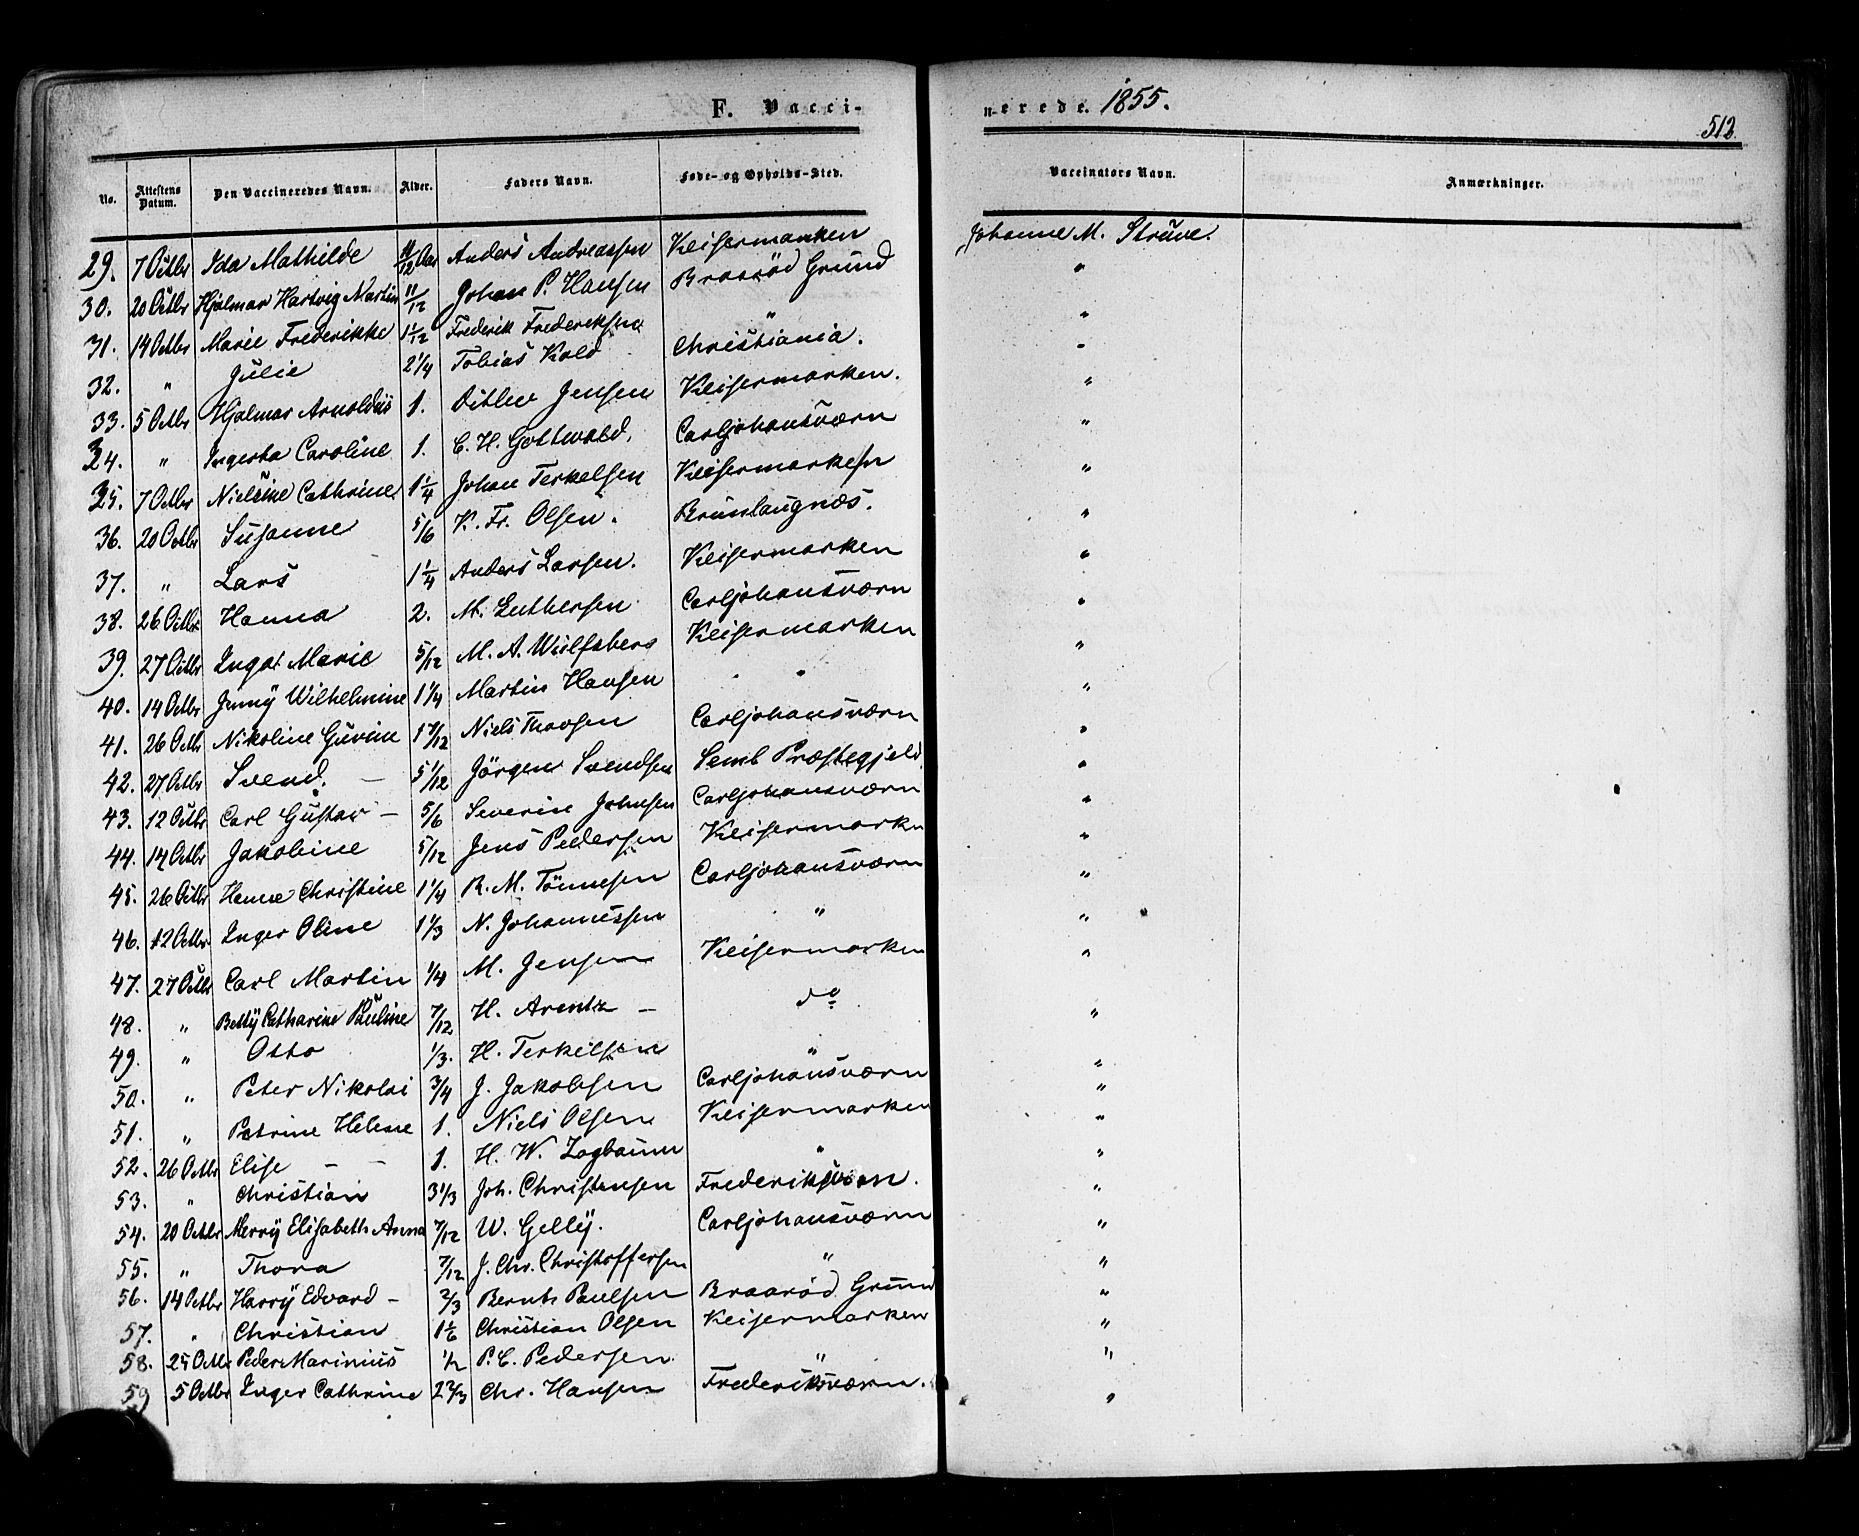 F. Vacci-
nerede. 1855.
512.
No. Attestens Datum. Den Vaccineredes Navn. Alder. Faders Navn. Føde- og Opholds-Sted. Vaccinators Navn. Anmærkninger.
29. 7 Octbr Ida Mathilde 11/12 Aar Anders Andreassen Keisermarken Johanne M. Strüve.
30. 20 Octbr Hjalmar Hartvig Martin 11/12 Johan P. Hansen Braarød Grund "
31. 14 Octbr Marie Frederikke 1 1/12 Frederik Frederiksen " "
32. " Julie 2 1/4 Tobias Kold Christiania. "
33. 5 Octbr Hjalmar Arnoldus 1. Ditlev Jensen Keisermarken. "
34. " Ingerba Caroline 1. C. H. Gottwald. Carljohansværn "
35. 7 Octbr Nielsine Cathrine 1 1/4 Johan Terkelsen Keisermarken "
36. 20 Octbr Susanne 5/6 K. Fr. Olsen. Brunlaugnæs. "
37. " Lars 1 1/4 Anders Larsen. Keisermarken "
38. 26 Octbr Hanna 2. M. Luthersen Carljohansværn "
39. 27 Octbr Ingar Marie 5/12 M. A. Wulfsberg Keisermarken "
40. 14 Octbr Jenny Wilhelmine 1 1/4 Martin Hansen " "
41. 26 Octbr Nikoline Guvine 1 7/12 Niels Thorsen Carljohansværn "
42. 27 Octbr Svend. — 5 1/12 Jørgen Svendsen Semb Præstegjeld "
43. 12 Octbr Carl Gustav — 5/6 Severin Johnsen Carljohansværn "
44. 14 Octbr Jakobine 5/12 Jens Pedersen Keisermarken "
45. 26 Octbr Hanne Christine 1 1/4 R. M. Tönnesen Carljohansværn "
46. 12 Octbr Inger Oline 1 1/3 N. Johannessen " "
47. 27 Octbr Carl Martin 1/4 M. Jensen Keisermarken "
48. " Betty Catharine Pauline 7/12 H. Arentz — do "
49. " Otto 1/3. H. Terkelsen " "
50. " Peter Nikolai 3/4 J. Jakobsen Carljohansværn "
51. " Petrine Helene 1. Niels Olsen Keisermarken "
52. 26 Octbr Elise — — 1. H. W. Zogbaum " "
53. " Christian 3 1/3 Joh. Christensen Frederiksværn. "
54. 20 Octbr Merry Elisabeth Anna 7/12 W. Gelly. Carljohansværn "
55. " Thora 7/12 J. Chr. Christoffersen " "
56. 14 Octbr Harry Edvard — 2/3 Bernts Paulsen Braarød Grund "
57. " Christian 1 1/6 Christian Olsen Keisermarken "
58. 25 Octbr Peder Marinius 1/2 P. C. Pedersen " "
59 5 Octbr Inger Cathrine 2 2/3 Chr. Hansen Frederiksværn. "